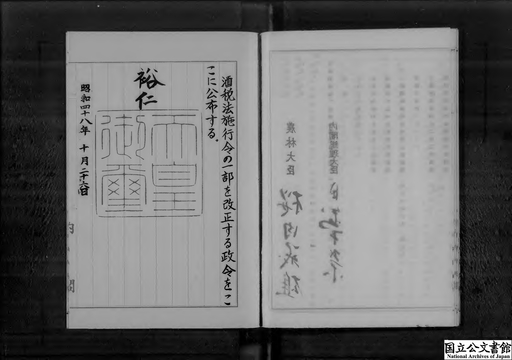 農林大臣
酒税法施行令の一部を改正する政令をこ
こに公布する。
裕仁
天皇
御璽
昭和四十八年 十月二十六日
内閣
国立公文書館
National Archives of Japan